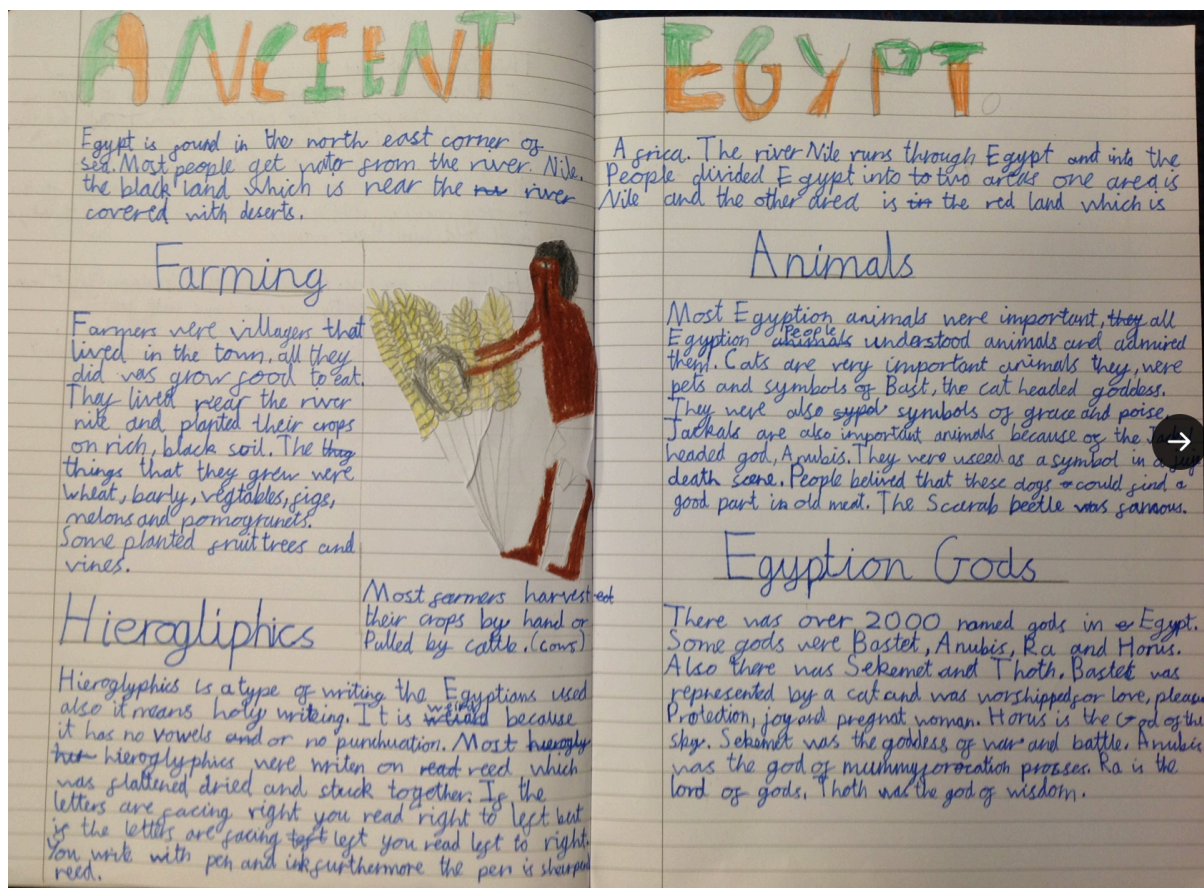 ANCIENT EGYPT
Egypt is found in the north east corner of Africa. The river Nile runs through Egypt and into the
sea. Most people get water from the river. Nile. People divided Egypt into to two areas one area is
the black land which is near the river Nile and the other area is the red land which is
covered with deserts.
Farming
Farmers were villagers that
lived in the town, all they
did was grow food to eat.
They lived near the river
nile and planted their crops
on rich, black soil. The
things that they grew were
wheat, barly, vegtables, figs,
melons and pomogranets.
Some planted fruit trees and
vines.
Most farmers harvest
their crops by hand or
Pulled by cattle. (cows)
Hierogliphics
Hieroglyphics is a type of writing the Egyptians used
also it means holy writeing. It is weird because
it has no vowels or no punchuation. Most
hieroglyphics were writen on reed which
was flattened dried and stuck together. If the
letters are facing right you read right to left but
if the letters are facing left you read left to right.
You write with pen and ink furthermore the pen is sharpend
reed.
Animals
Most Egyption animals were important, all
Egyption People understood animals and admired
them. Cats are very important animals they, were
pets and symbols of Bast, the cat headed goddess.
They were also symbols of grace and poise.
Jackals are also important animals because of the
headed god, Anubis. They were useed as a symbol in a
death scene. People belived that these dogs could find a
good part in old meat. The Scarab beetle was famous.
Egyption Gods
There was over 2000 named gods in Egypt.
Some gods were Bastet, Anubis, Ra and Horus.
Also there was Sekemet and Thoth. Bastet was
represented by a cat and was worshipped for love,
Protection, joy and pregnat woman. Horus is the God of the
sky. Sekemet was the goddess of war and battle. Anubis
was the god of prosses. Ra is the
lord of gods. Thoth was the god of wisdom.